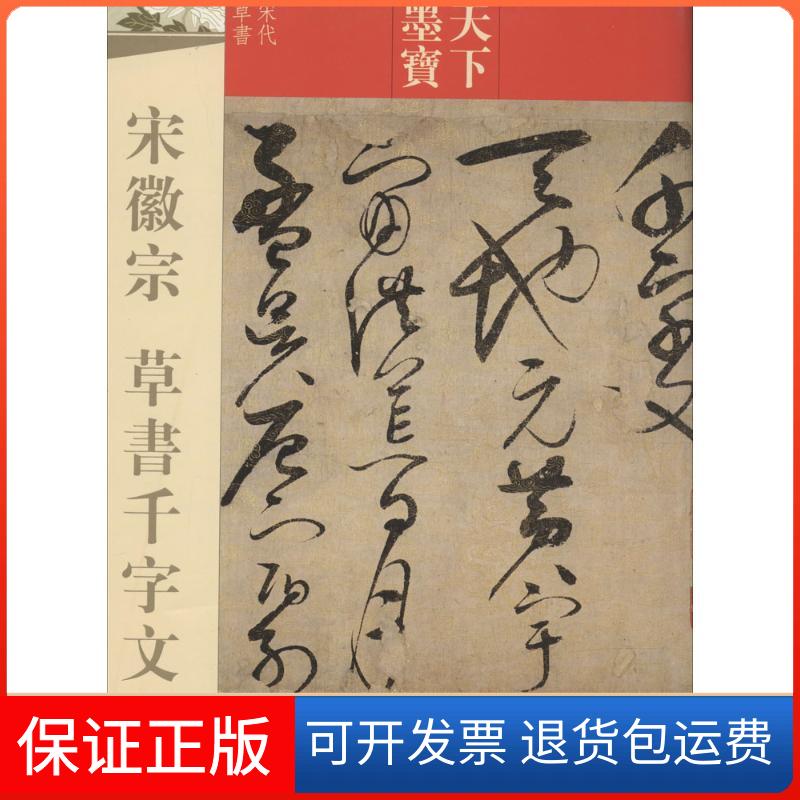 天下
墨寶
宋代
草書
宋徽宗 草書千字文
千字文
天地元黃宇
宙洪荒日月
盈昃辰宿列
保证正版
可开发票 退货包运费